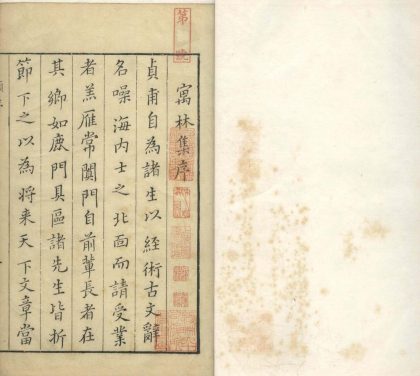 寓林集序
貞甫自為諸生以經術古文辭
名噪海内士之北面而請受業
者羔雁常闐門自前輩長者在
其鄉如鹿門具區諸先生皆折
節下之以為将来天下文章當